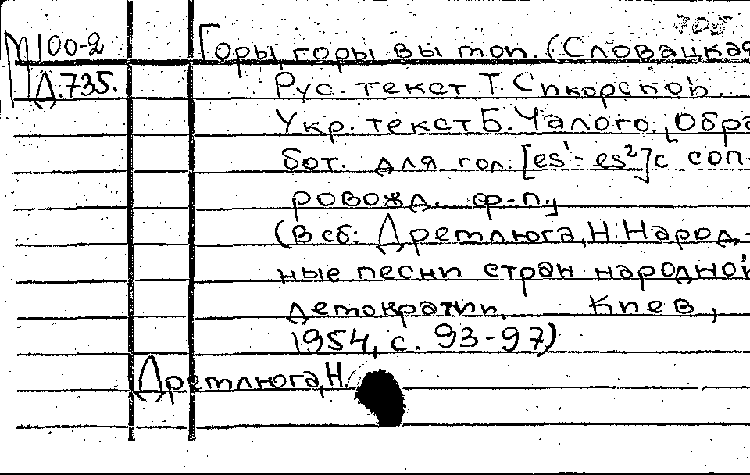 705
М100-2 Горы, горы вы мои. (Словацкая
Д.735. Рус. текст Т. Сикорской.
Укр. текст Б. Чалого. Обра-
бот. для гол. [es¹-es²] с соп-
ровожд. ф-п.,
(В сб: Дремлюга, Н. Народ-
ные песни стран народной
демократии. Киев,
1954, с. 93-97)
Дремлюга, Н.